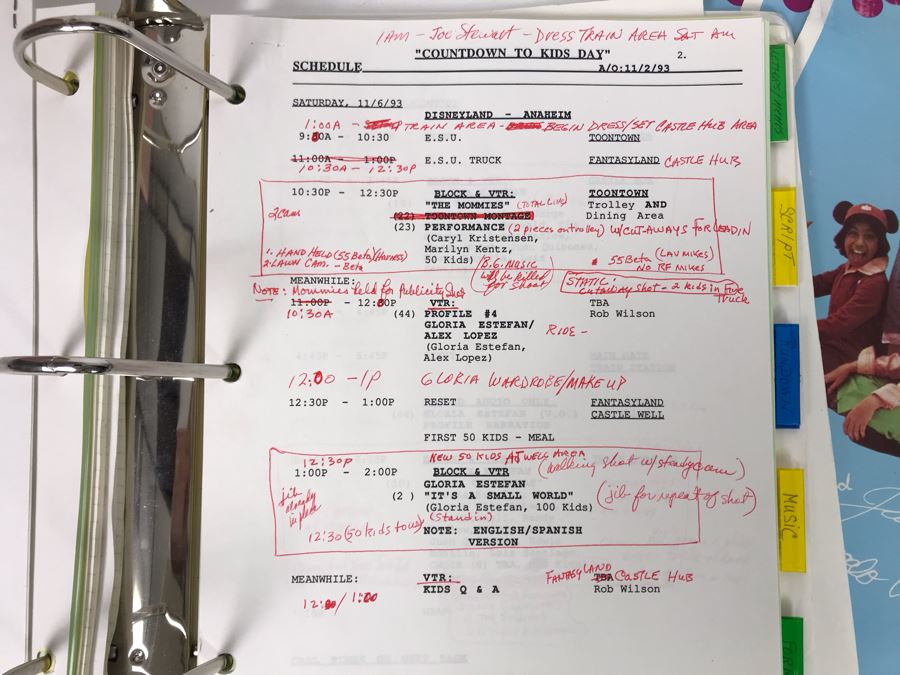 1AM - Joe Stewart - DRESS TRAIN AREA SAT AM
"COUNTDOWN TO KIDS DAY" 2.
SCHEDULE A/O:11/2/93
SATURDAY, 11/6/93
DISNEYLAND - ANAHEIM
1:00A - TRAIN AREA - BEGIN DRESS/SET CASTLE HUB AREA
9:30A - 10:30 E.S.U. TOONTOWN
11:00A - 1:00P E.S.U. TRUCK FANTASYLAND CASTLE HUB
10:30A - 12:30P
10:30P - 12:30P BLOCK & VTR: TOONTOWN
"THE MOMMIES" (TOTAL LIVE) Trolley AND
2 cam (22) TOONTOWN MONTAGE Dining Area
(23) PERFORMANCE (2 pieces on trolley) W/CUT-AWAYS FOR LEAD IN
(Caryl Kristensen,
Marilyn Kentz,
50 Kids)
1. HAND HELD (55 Beta)(Harness)
2. LAWN CAM. - Beta
B.G. MUSIC will be killed for shoot
55 Beta (LAV MIKES)
NO RF MIKES
MEANWHILE:
NOTE: Mommies held for Publicity
STATIC cutaway shot - 2 kids in Fire Truck
11:00P - 12:30P VTR: TBA
10:30A (44) PROFILE #4 Rob Wilson
GLORIA ESTEFAN/
ALEX LOPEZ RIDE -
(Gloria Estefan,
Alex Lopez)
12:00 - 1P GLORIA WARDROBE/MAKE UP
12:30P - 1:00P RESET FANTASYLAND
CASTLE WELL
FIRST 50 KIDS - MEAL
12:30P NEW 50 KIDS AT WELL AREA
1:00P - 2:00P BLOCK & VTR (walking shot w/steadycam)
GLORIA ESTEFAN
jib already in place
(2 ) "IT'S A SMALL WORLD" (jib for repeat of shot)
(Gloria Estefan, 100 Kids)
12:30 (50 kids to us) (Stand in)
NOTE: ENGLISH/SPANISH
VERSION
MEANWHILE: VTR: FANTASYLAND TBA CASTLE HUB
12:00/1:00 KIDS Q & A Rob Wilson
SCRIPT
RUNDOWN
MUSIC